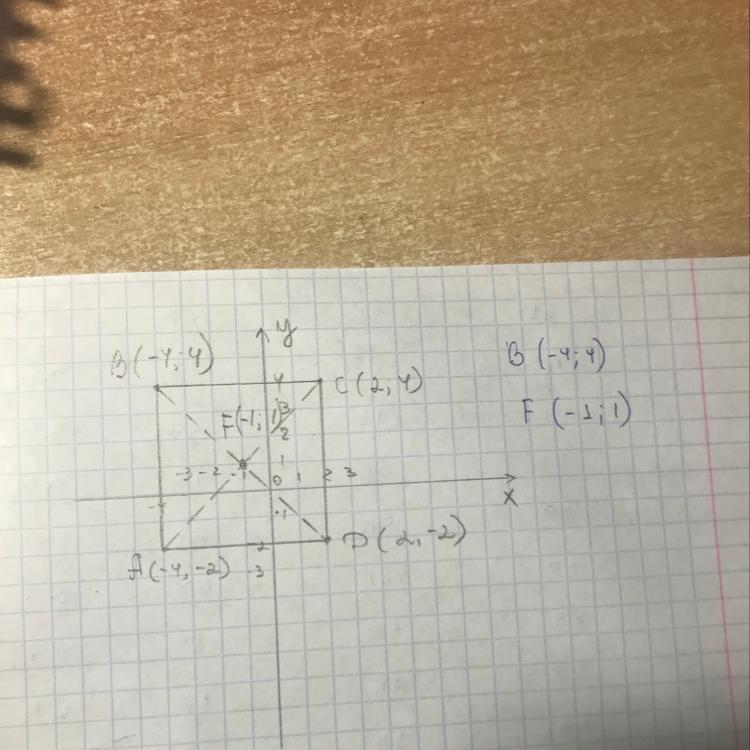 y
B (-4; 4)
B (-4; 4)
4
C (2, 4)
F (-1; 1)
3
F (-1; 1)
2
1
-3 -2 -1 0 1 2 3
x
-4
-1
-2
D (2, -2)
A (-4, -2)
-3